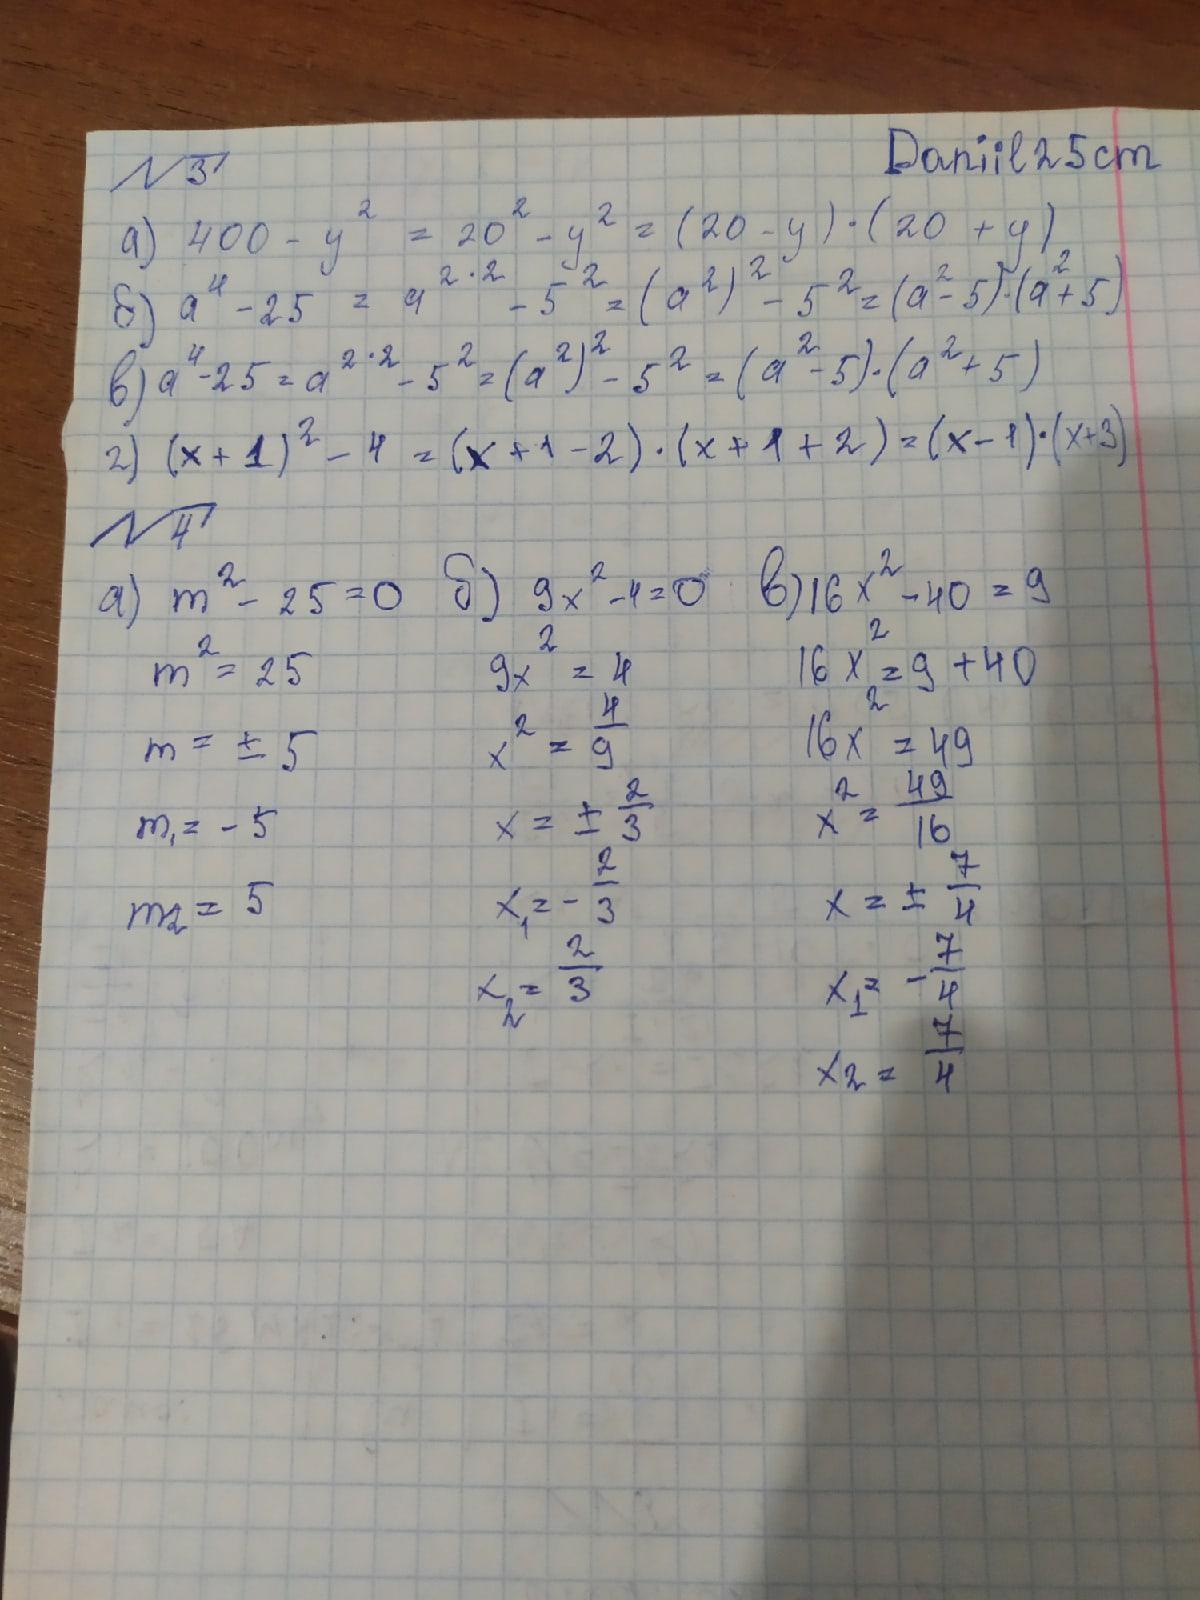 Daniil25cm
№3
а) 400 - y² = 20² - y² = (20 - y)·(20 + y)
б) a⁴ - 25 = a²·² - 5² = (a²)² - 5² = (a² - 5)·(a² + 5)
в) a⁴ - 25 = a²·² - 5² = (a²)² - 5² = (a² - 5)·(a² + 5)
г) (x + 1)² - 4 = (x + 1 - 2)·(x + 1 + 2) = (x - 1)·(x + 3)
№4
а) m² - 25 = 0
m² = 25
m = ± 5
m₁ = - 5
m₂ = 5
б) 9x² - 4 = 0
9x² = 4
x² = 4/9
x = ± 2/3
x₁ = - 2/3
x₂ = 2/3
в) 16x² - 40 = 9
16x² = 9 + 40
16x² = 49
x² = 49/16
x = ± 7/4
x₁ = - 7/4
x₂ = 7/4